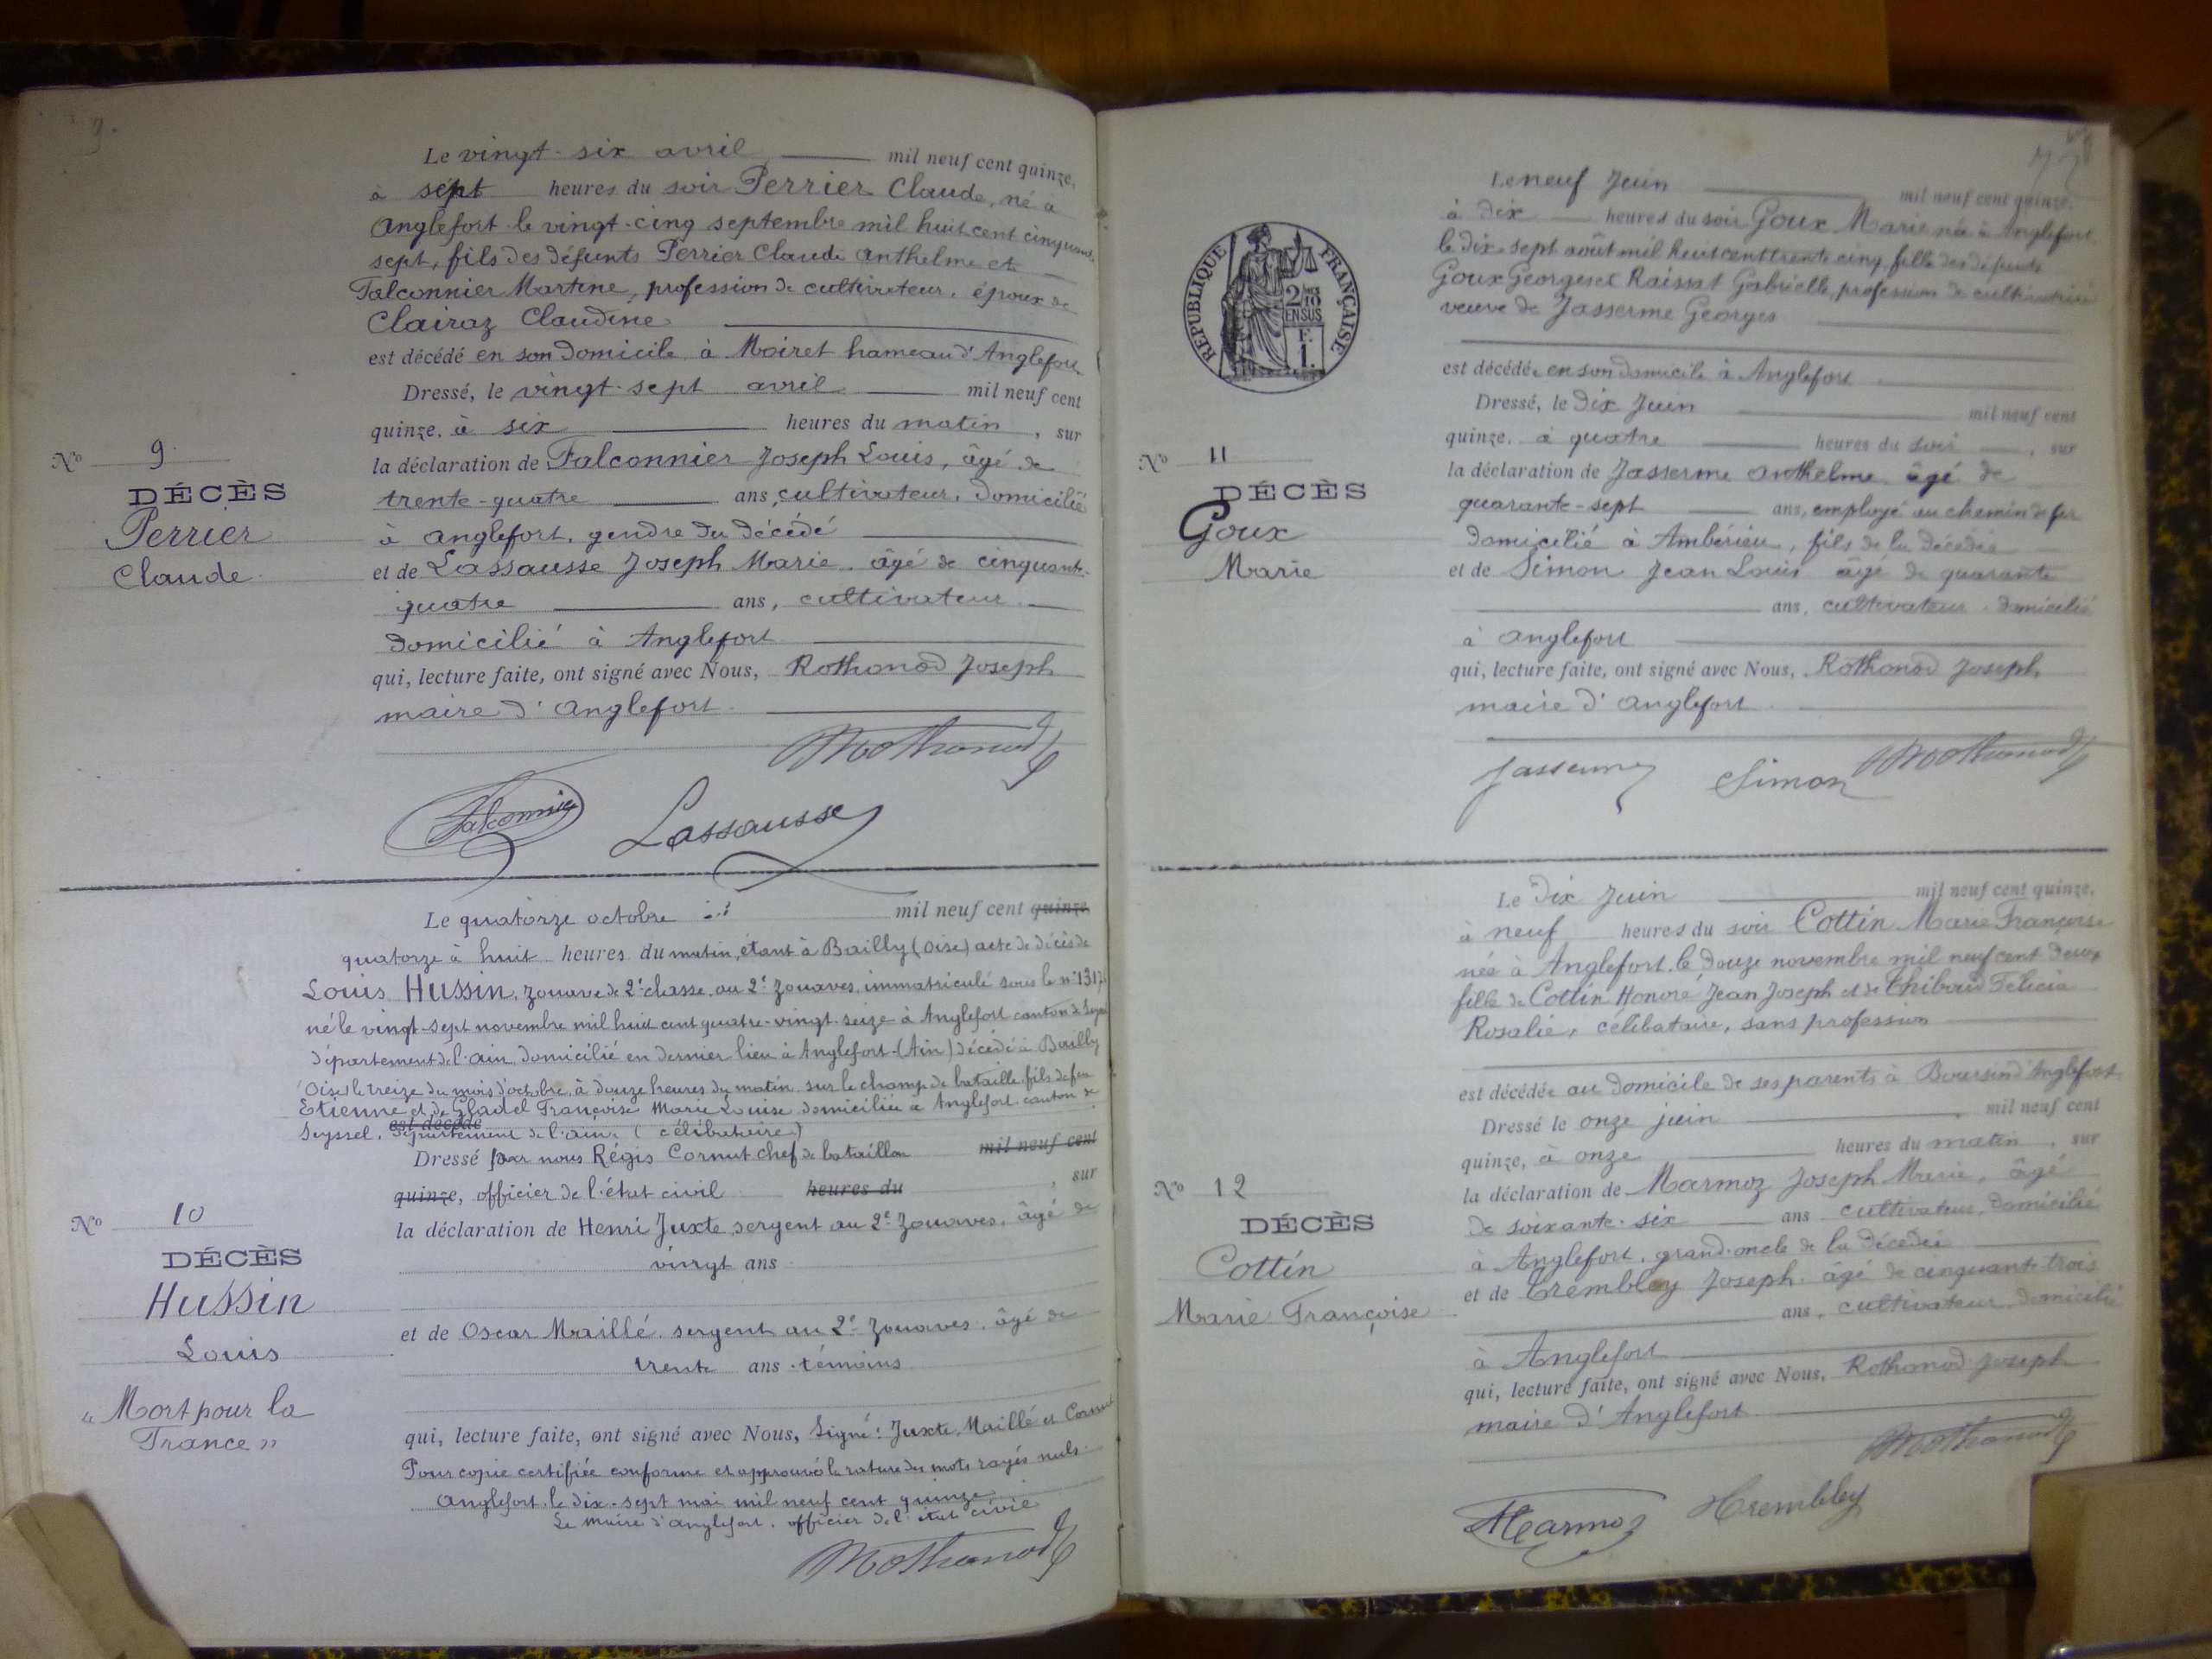 Le vingt-six avril mil neuf cent quinze,
à sept heures du soir Perrier Claude, né à
Anglefort le vingt-cinq septembre mil huit cent cinquante
sept, fils des défunts Perrier Claude Anthelme et
Falconnier Martine, profession de cultivateur, époux de
Clairaz Claudine
est décédé en son domicile à Moiret hameau d'Anglefort
Dressé, le vingt-sept avril mil neuf cent
quinze, à six heures du matin, sur
la déclaration de Falconnier Joseph Louis, âgé de
trente-quatre ans, cultivateur, domicilié
à Anglefort, gendre du décédé
et de Lassausse Joseph Marie, âgé de cinquante-
quatre ans, cultivateur
domicilié à Anglefort
qui, lecture faite, ont signé avec Nous, Rothonod Joseph
maire d'Anglefort
Rothonod
Falconnier Lassausse
No 9
DÉCÈS
Perrier
Claude
Le quatorze octobre mil neuf cent quinze
quatorze à huit heures du matin, étant à Bailly (Oise) acte de décès de
Louis Hussin, zouave de 2e classe au 2e zouaves, immatriculé sous le n°
né le vingt-sept novembre mil huit cent quatre-vingt-seize à Anglefort canton de
département de l'Ain, domicilié en dernier lieu à Anglefort (Ain) décédé à Bailly
(Oise) le treize du mois d'octobre, à douze heures du matin, sur le champ de bataille, fils de feu
Etienne et de Gladel Françoise Marie Louise domiciliée à Anglefort canton de
est décédé
Seyssel, département de l'Ain. (célibataire)
Dressé par nous Régis Cornut chef de bataillon mil neuf cent
quinze, officier de l'état civil heures du , sur
la déclaration de Henri Juxte, sergent au 2e zouaves, âgé de
vingt ans
et de Oscar Maillé, sergent au 2e zouaves, âgé de
trente ans témoins
qui, lecture faite, ont signé avec Nous, Signé: Juxte, Maillé et Cornut
Pour copie certifiée conforme et approuvé la rature des mots rayés nuls.
Anglefort, le dix-sept mai mil neuf cent quinze
Le maire d'Anglefort, officier de l'état civil
Rothonod
No 10
DÉCÈS
Hussin
Louis
"Mort pour la
France"
RÉPUBLIQUE FRANÇAISE
2/10 EN SUS
F. 1.
Le neuf Juin mil neuf cent quinze,
à dix heures du soir Goux Marie née à Anglefort
le dix-sept août mil huit cent trente cinq, fille des défunts
Goux Georges et Raissat Gabrielle, profession de cultivatrice
veuve de Jasserme Georges
est décédée en son domicile à Anglefort
Dressé, le dix Juin mil neuf cent
quinze, à quatre heures du soir, sur
la déclaration de Jasserme Anthelme âgé de
quarante-sept ans, employé au chemin de fer
domicilié à Ambérieu, fils de la décédée
et de Simon Jean Louis âgé de quarante
ans, cultivateur domicilié
à Anglefort
qui, lecture faite, ont signé avec Nous, Rothonod Joseph
maire d'Anglefort
Jasserme Simon Rothonod
No 11
DÉCÈS
Goux
Marie
Le dix Juin mil neuf cent quinze,
à neuf heures du soir Cottin Marie Françoise
née à Anglefort le douze novembre mil neuf cent deux
fille de Cottin Honoré Jean Joseph et de Thiboud Félicia
Rosalie, célibataire, sans profession
est décédée au domicile de ses parents à Boursin d'Anglefort
Dressé le onze juin mil neuf cent
quinze, à onze heures du matin, sur
la déclaration de Marmoz Joseph Marie, âgé
de soixante-six ans cultivateur, domicilié
à Anglefort, grand-oncle de la décédée
et de Trembley Joseph, âgé de cinquante trois
ans, cultivateur domicilié
à Anglefort
qui, lecture faite, ont signé avec Nous, Rothonod Joseph
maire d'Anglefort
Rothonod
Marmoz Trembley
No 12
DÉCÈS
Cottin
Marie Françoise